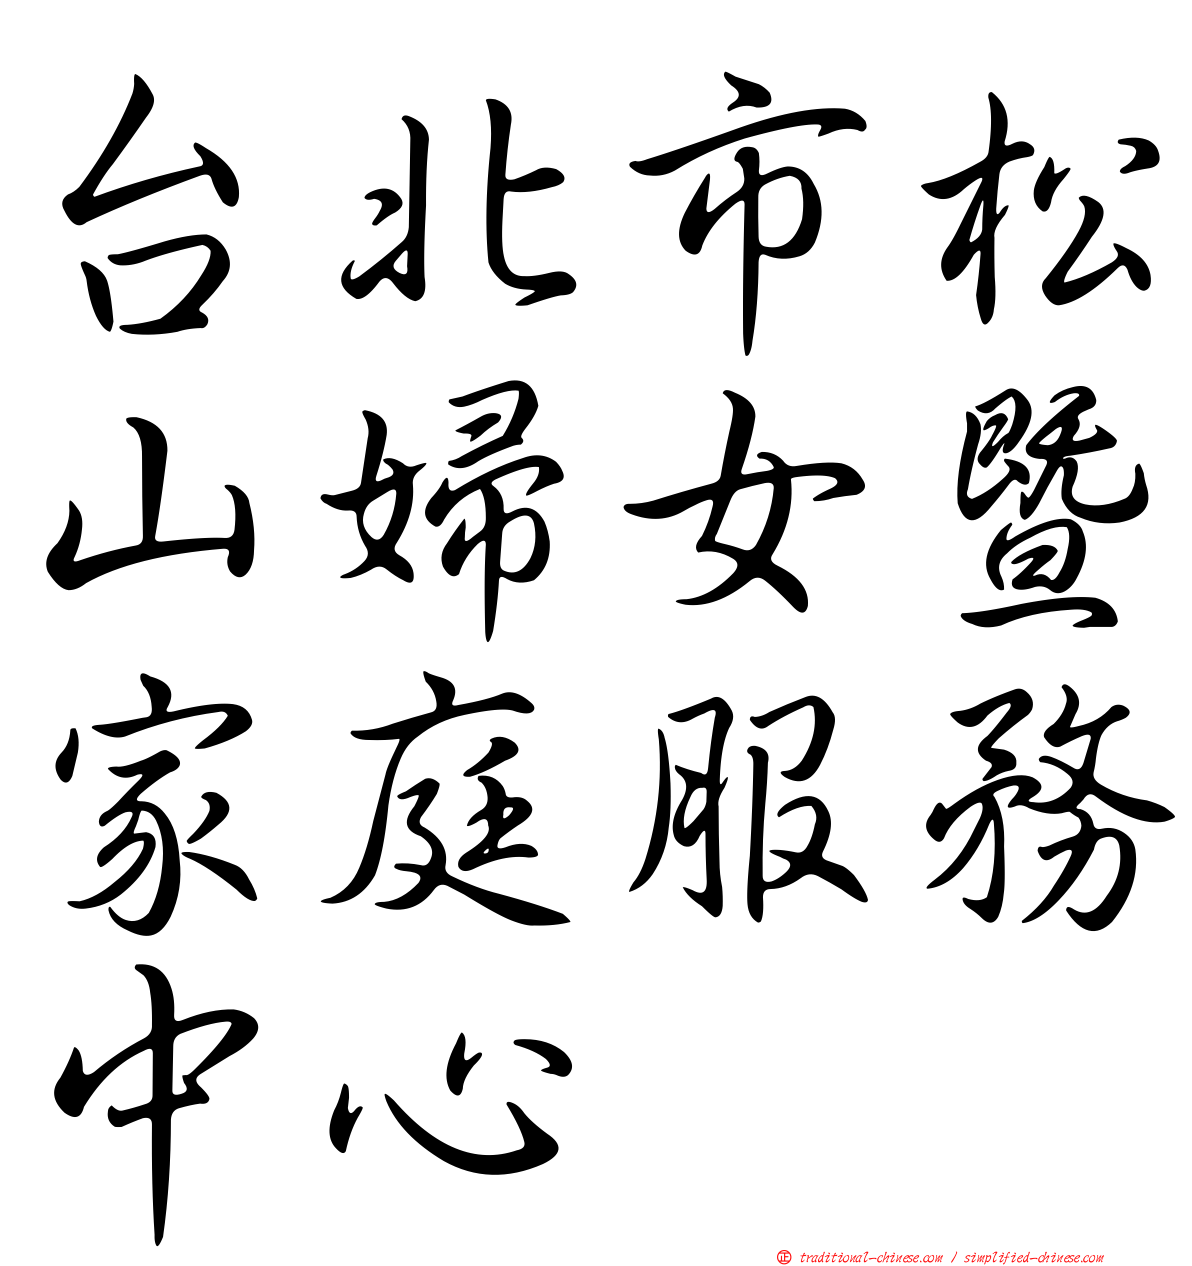 台北市松
山婦女暨
家庭服務
中心
正 traditional-chinese.com / simplified-chinese.com